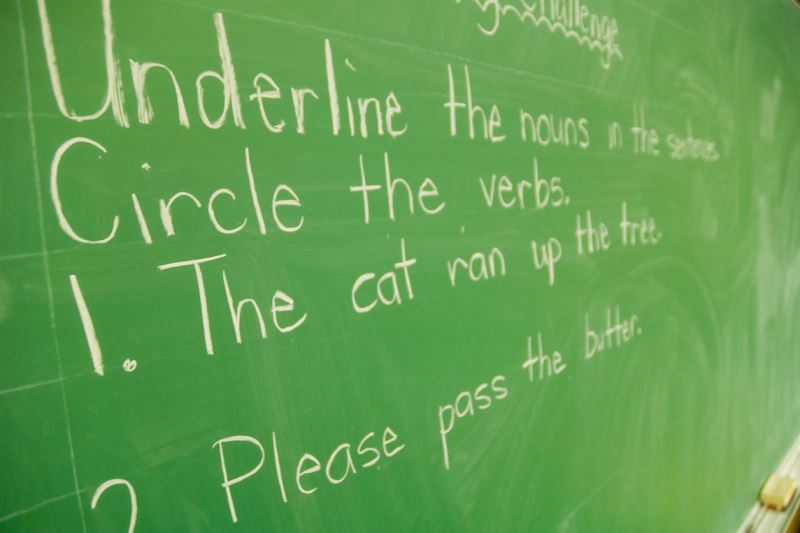 Challenge
Underline the nouns in the sentences.
Circle the verbs.
1. The cat ran up the tree.
2. Please pass the butter.